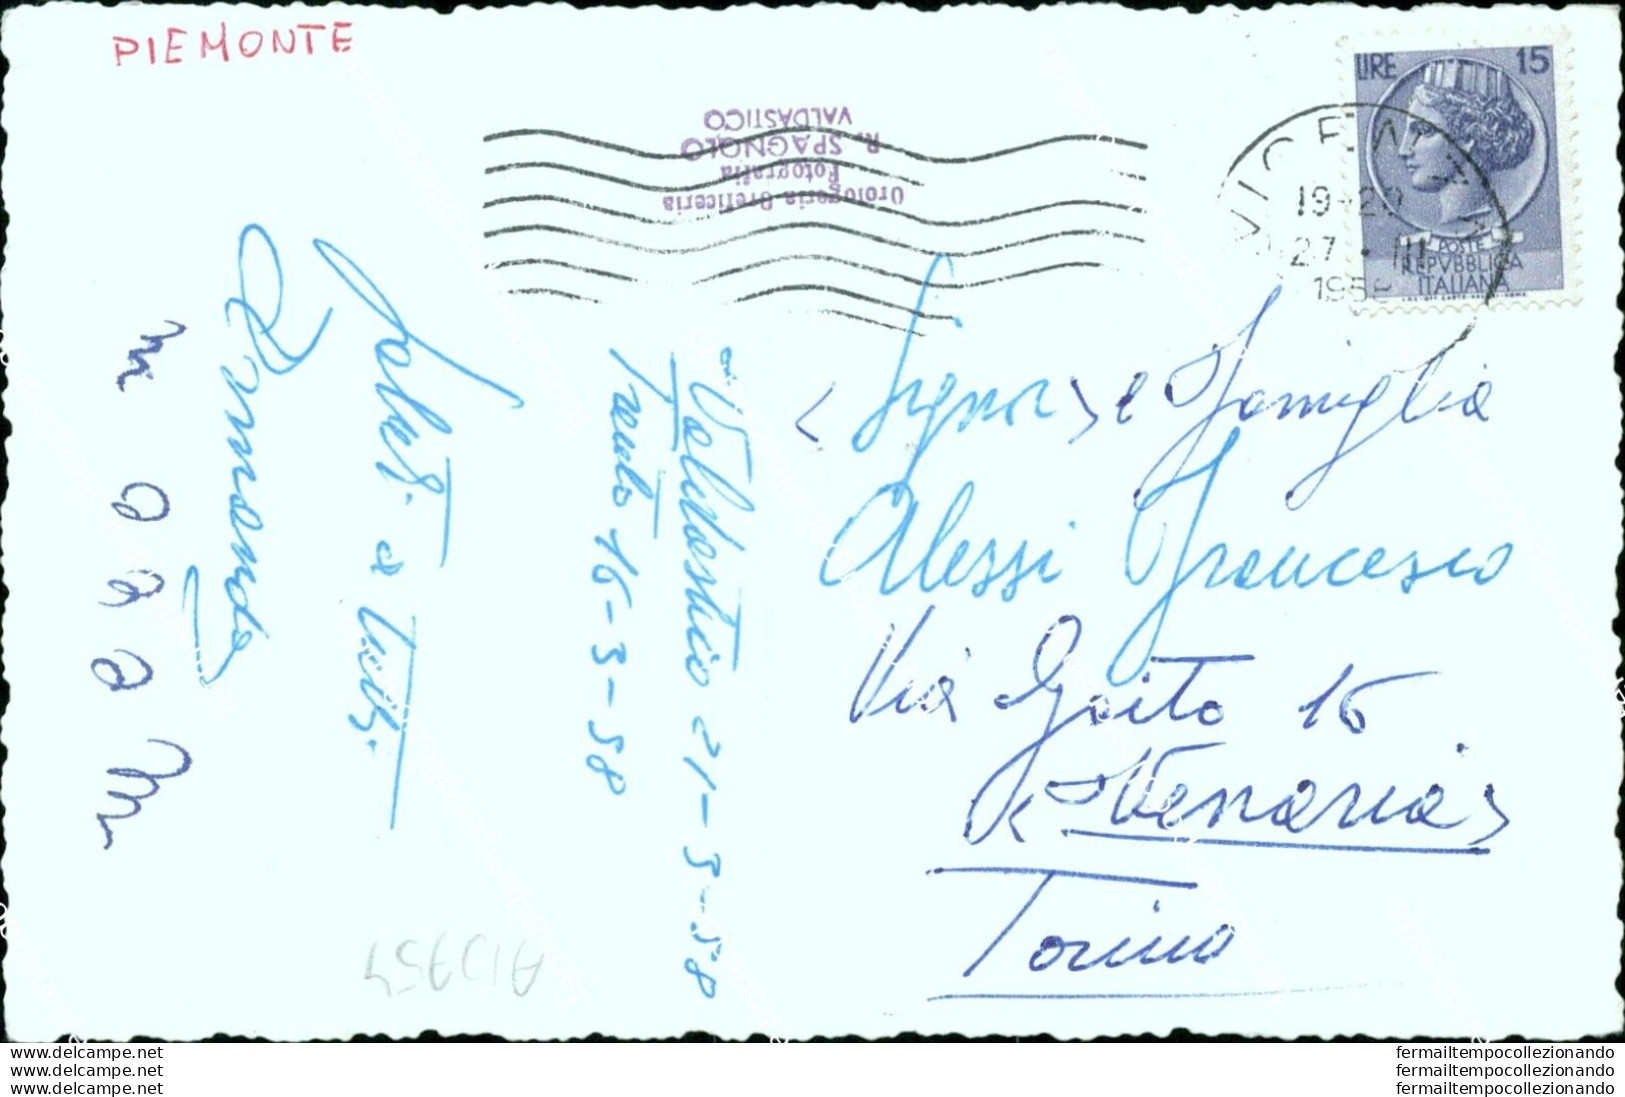 PIEMONTE
LIRE 15
POSTE
REPVBBLICA
ITALIANA
VICENZA
19-20
27 · III
195
Orologeria Oreficeria
Fotografia
R. SPAGNOLO
VALDASTICO
Valdastico 21-3-58
16-3-58
Saluti a tutti
Signor e Famiglia
Alessi Francesco
Via Goito 16
Venaria
Torino
A10954
www.delcampe.net
www.delcampe.net
www.delcampe.net
fermailtempocollezionando
fermailtempocollezionando
fermailtempocollezionando